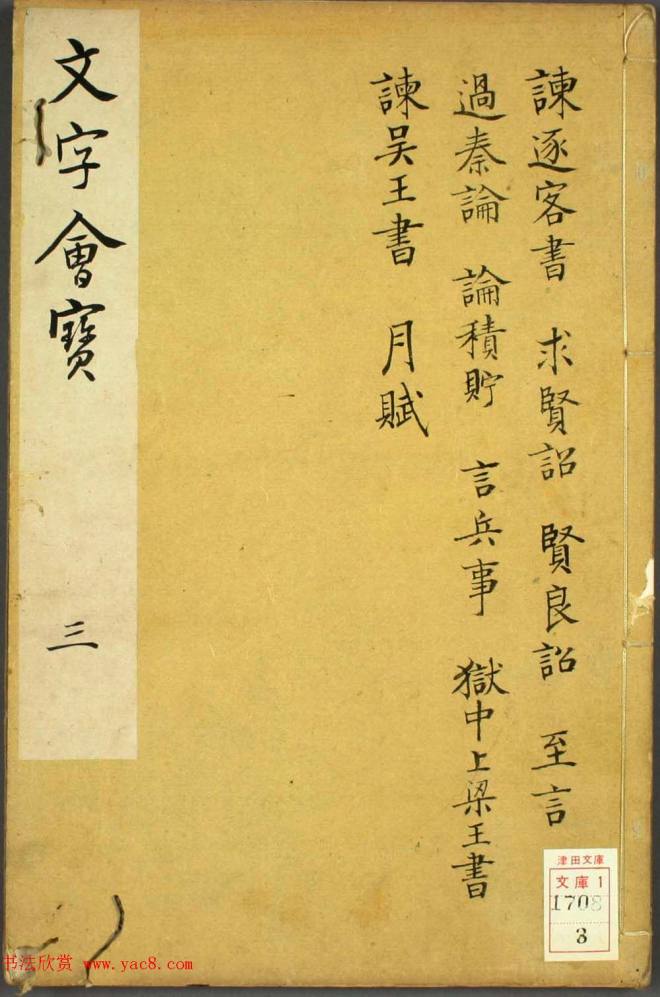 諫逐客書 求賢詔 賢良詔 至言
過秦論 論積貯 言兵事 獄中上梁王書
諫吴王書 月賦
文字會寳
三
津田文庫
文庫1
1708
3
书法欣赏 www.yac8.com